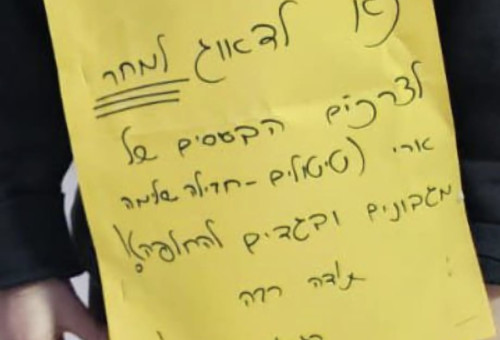 נא לדאוג למחר
לצרכים הבסיסים של
ארי (טיטולים - חבילה שלמה
מגבונים ובגדים להחלפה!)
תודה רבה